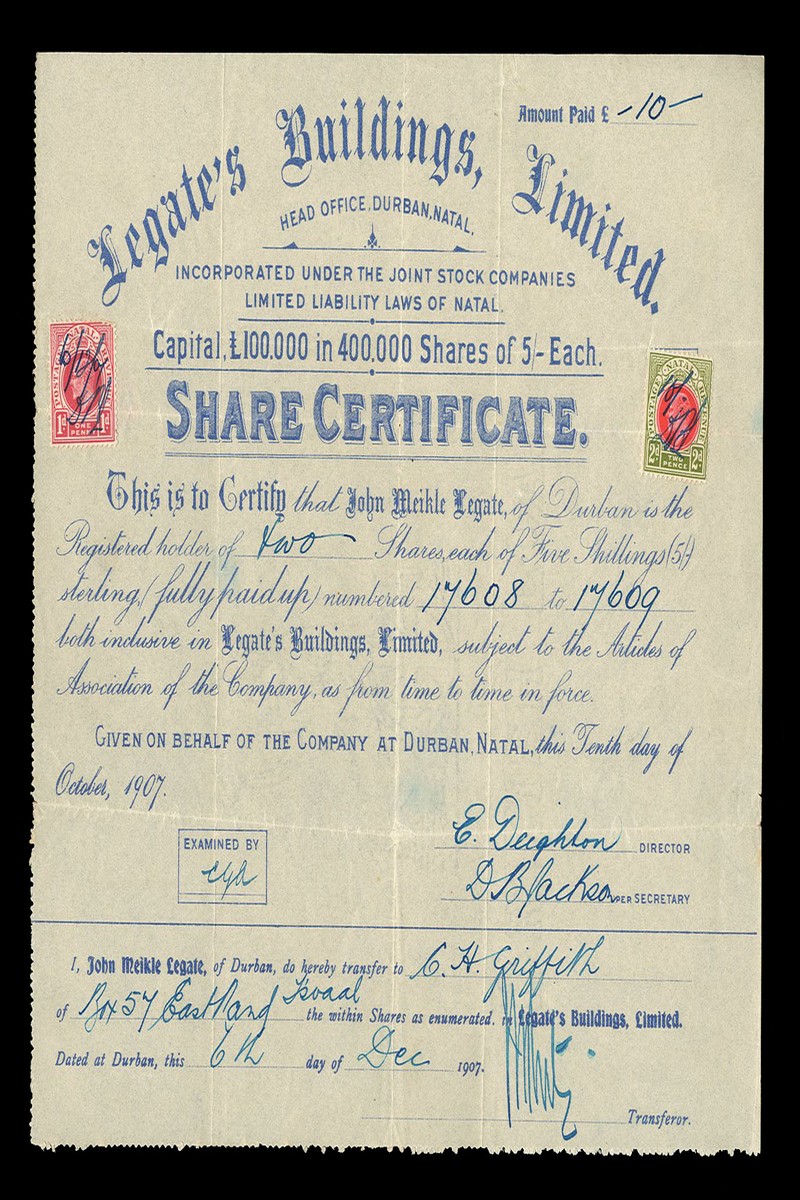 Amount Paid £ -10-
Legate's Buildings, Limited.
HEAD OFFICE, DURBAN, NATAL.
INCORPORATED UNDER THE JOINT STOCK COMPANIES
LIMITED LIABILITY LAWS OF NATAL.
Capital, £100.000 in 400,000 Shares of 5/- Each.
SHARE CERTIFICATE.
POSTAGE NATAL REVENUE
1d ONE PENNY 1d
POSTAGE NATAL REVENUE
2d TWO PENCE 2d
This is to Certify that John Meikle Legate, of Durban is the
Registered holder of two Shares, each of Five Shillings (5/-)
sterling, (fully paid up) numbered 17608 to 17609
both inclusive in Legate's Buildings, Limited, subject to the Articles of
Association of the Company, as from time to time in force.
GIVEN ON BEHALF OF THE COMPANY AT DURBAN, NATAL, this Tenth day of
October, 1907.
E. Deighton DIRECTOR
EXAMINED BY
D B Jackson PER SECRETARY
I, John Meikle Legate, of Durban, do hereby transfer to C. H. Griffith
of Box 57 East Rand Tsvaal the within Shares as enumerated. in Legate's Buildings, Limited.
Dated at Durban, this 6th day of Dec 1907.
Transferor.